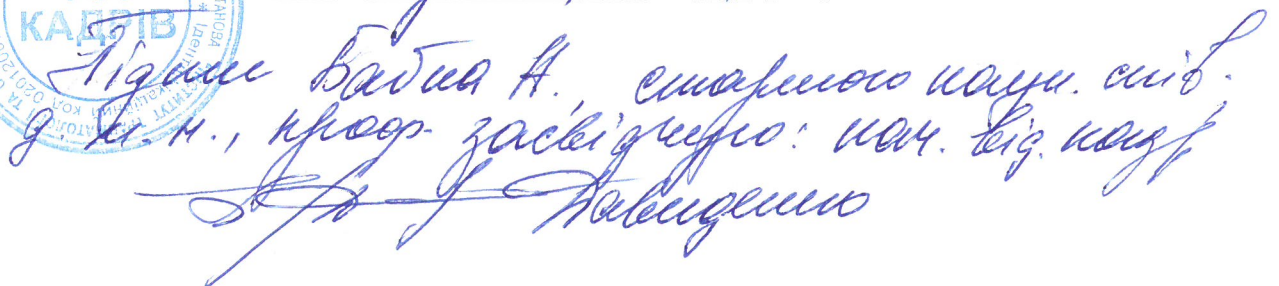 КАДРІВ
Підпис Бабка А., старшого наук. спів.
д. м. н., проф. засвідчую: нач. від. кадр
Давиденко